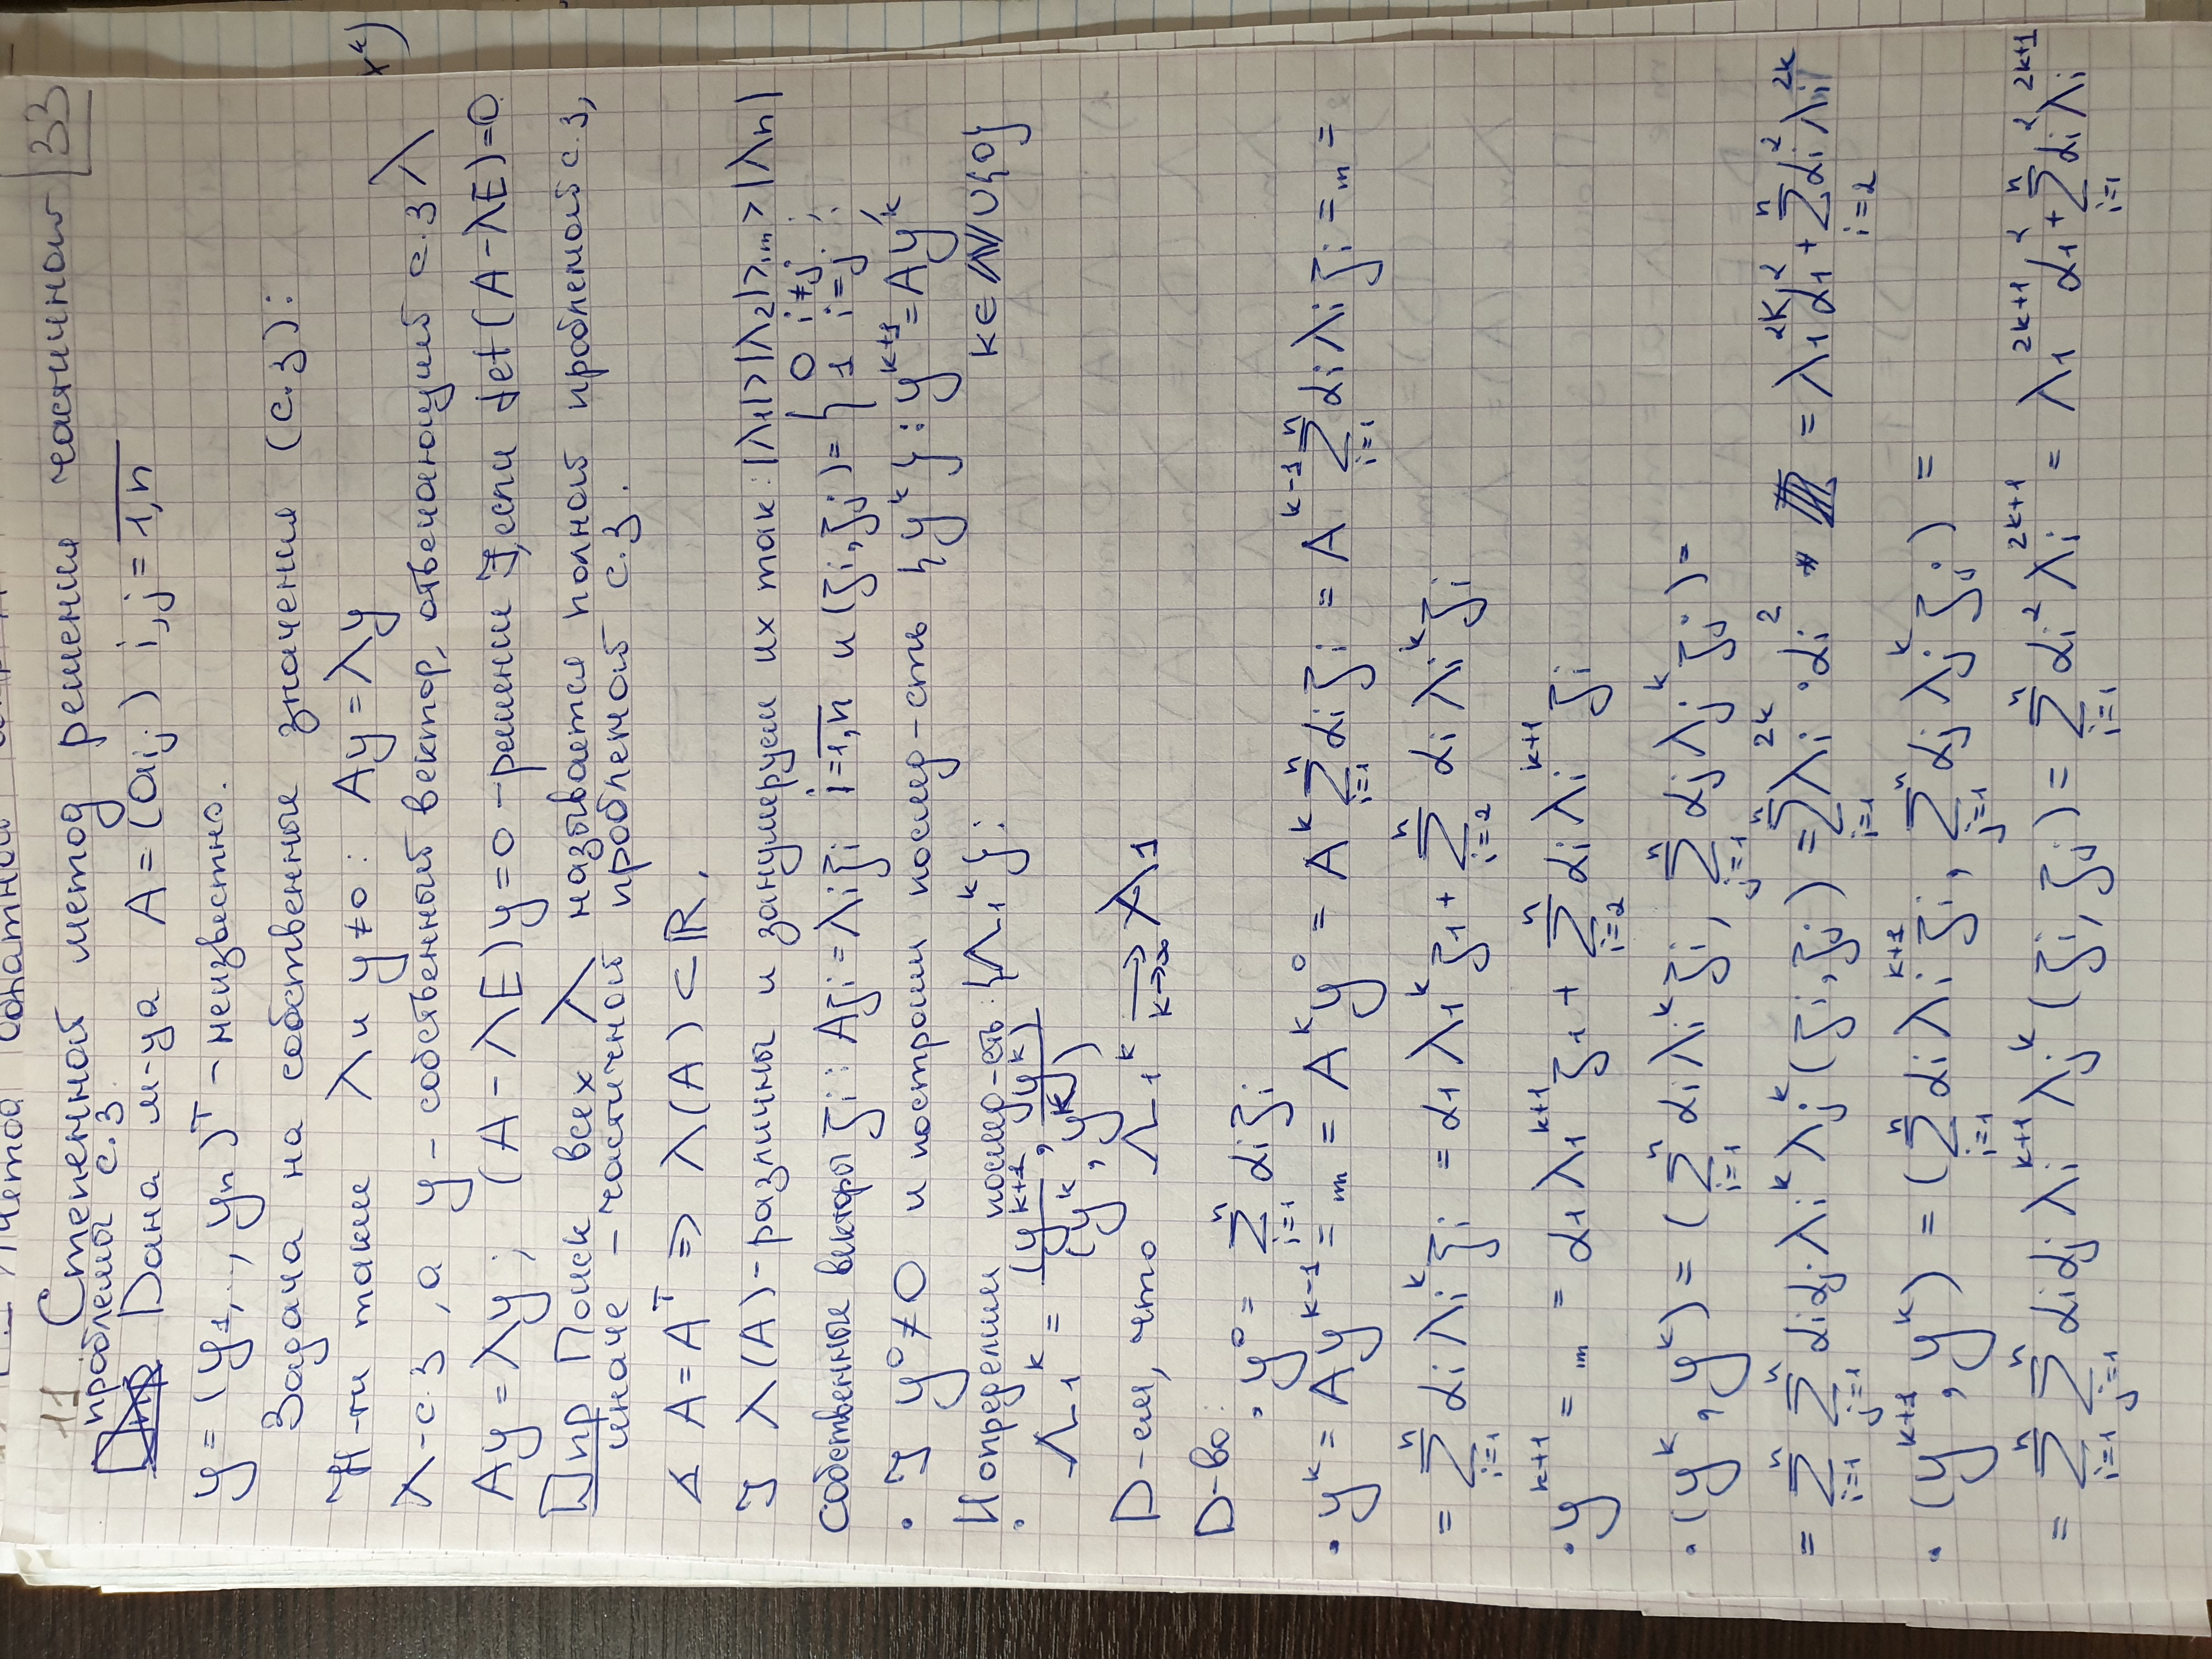 x^k)
11 Степенной метод решения частичной |33
проблемы с.з
Дана м-ца A = (aij) i,j = 1,n
y = (y1,.., yn)^T - неизвестно.
Задача на собственные значения (с.з):
Н-ти такие λ и y ≠ 0: Ay = λy
λ - с.з, а y - собственный вектор, отвечающий с.з λ
Ay = λy; (A - λE)y = 0 - решение ∃, если det(A - λE) = 0
Опр Поиск всех λ называется полной проблемой с.з,
иначе - частичной проблемой с.з.
∢ A = A^T => λ(A) ⊂ ℝ.
] λ(A) - различны и занумеруем их так: |λ1| > |λ2| > ... > |λn|
Собственные векторы ξi: Aξi = λiξi i = 1,n и (ξi, ξj) = { 0 i≠j; 1 i=j;
• ] y^0 ≠ 0 и построим послед-сть {y^k}: y^{k+1} = Ay^k, k ∈ ℕ∪{0}
• И определим послед-сть: {Λ1^k}:
Λ1^k = (y^{k+1}, y^k) / (y^k, y^k)
D-ем, что Λ1^k → λ1 k→∞
D-во: • y^0 = Σ_{i=1}^n αi ξi
• y^k = Ay^{k-1} = ... = A^k y^0 = A^k Σ_{i=1}^n αi ξi = A^{k-1} Σ_{i=1}^n αi λi ξi = ... =
= Σ_{i=1}^n αi λi^k ξi = α1 λ1^k ξ1 + Σ_{i=2}^n αi λi^k ξi
• y^{k+1} = ... = α1 λ1^{k+1} ξ1 + Σ_{i=2}^n αi λi^{k+1} ξi
• (y^k, y^k) = (Σ_{i=1}^n αi λi^k ξi, Σ_{j=1}^n αj λj^k ξj) =
= Σ_{i=1}^n Σ_{j=1}^n αi αj λi^k λj^k (ξi, ξj) = Σ_{i=1}^n λi^{2k} · αi^2 = λ1^{2k} α1^2 + Σ_{i=2}^n αi^2 λi^{2k}
• (y^{k+1}, y^k) = (Σ_{i=1}^n αi λi^{k+1} ξi, Σ_{j=1}^n αj λj^k ξj) =
= Σ_{i=1}^n Σ_{j=1}^n αi αj λi^{k+1} λj^k (ξi, ξj) = Σ_{i=1}^n αi^2 λi^{2k+1} = λ1^{2k+1} α1^2 + Σ_{i=1}^n αi^2 λi^{2k+1}